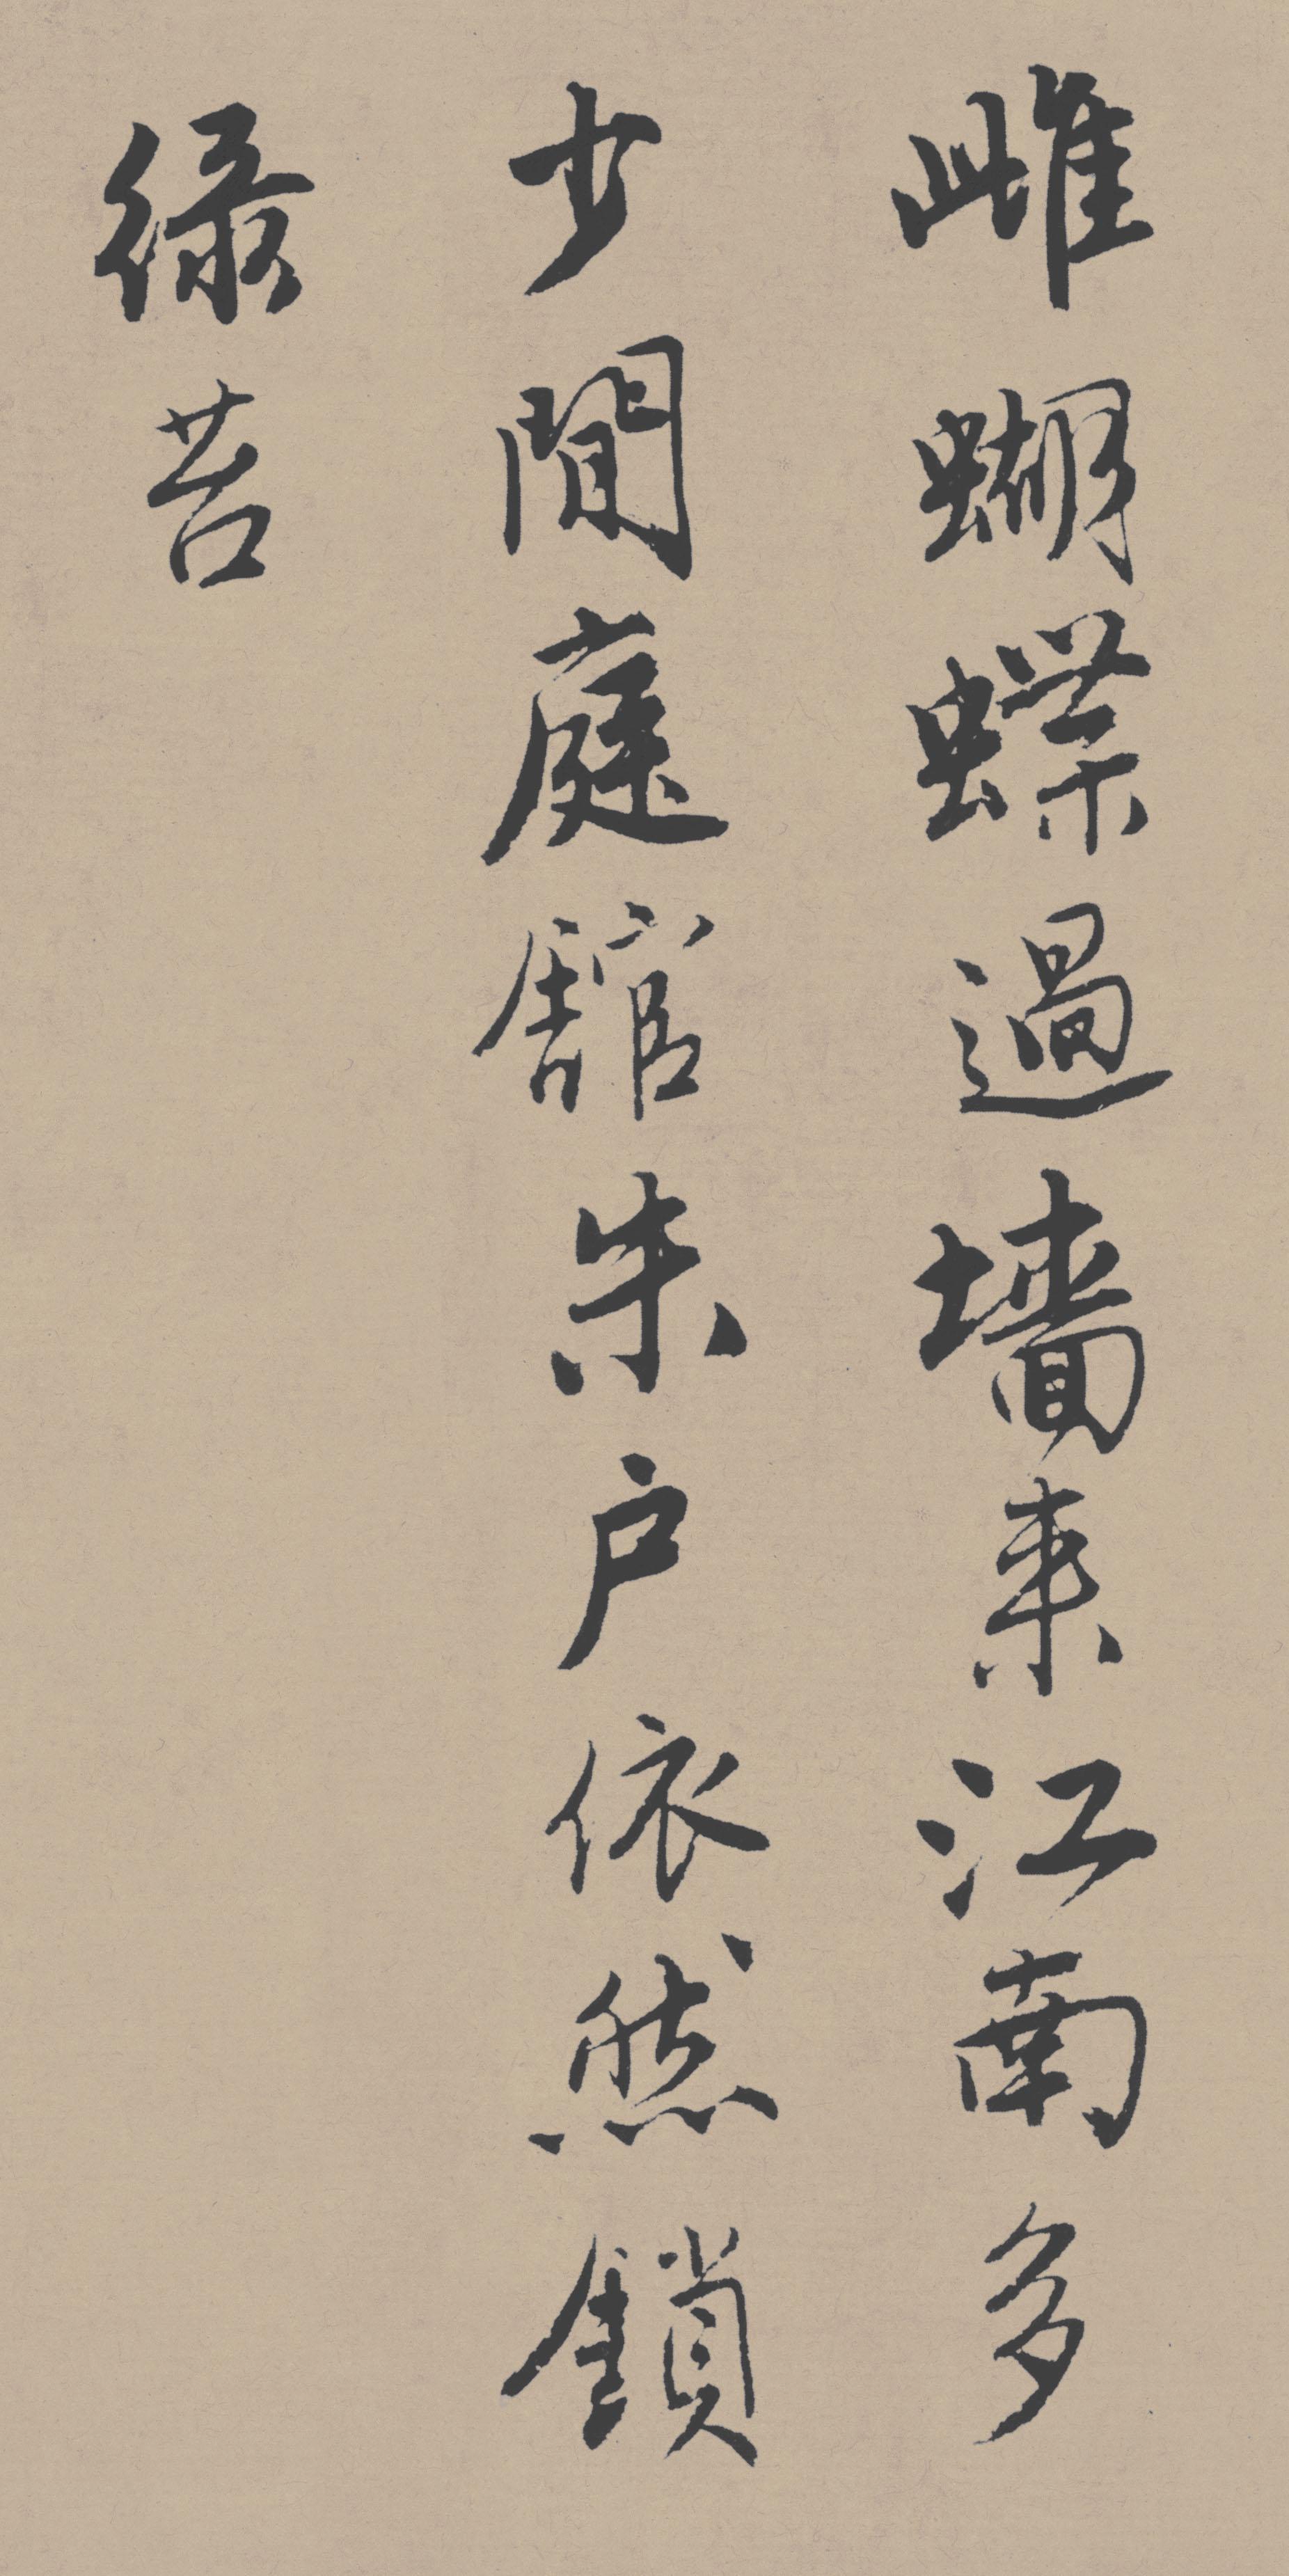 雌蝴蝶過墻来江南多
少閒庭館朱户依然鎖
緑苔